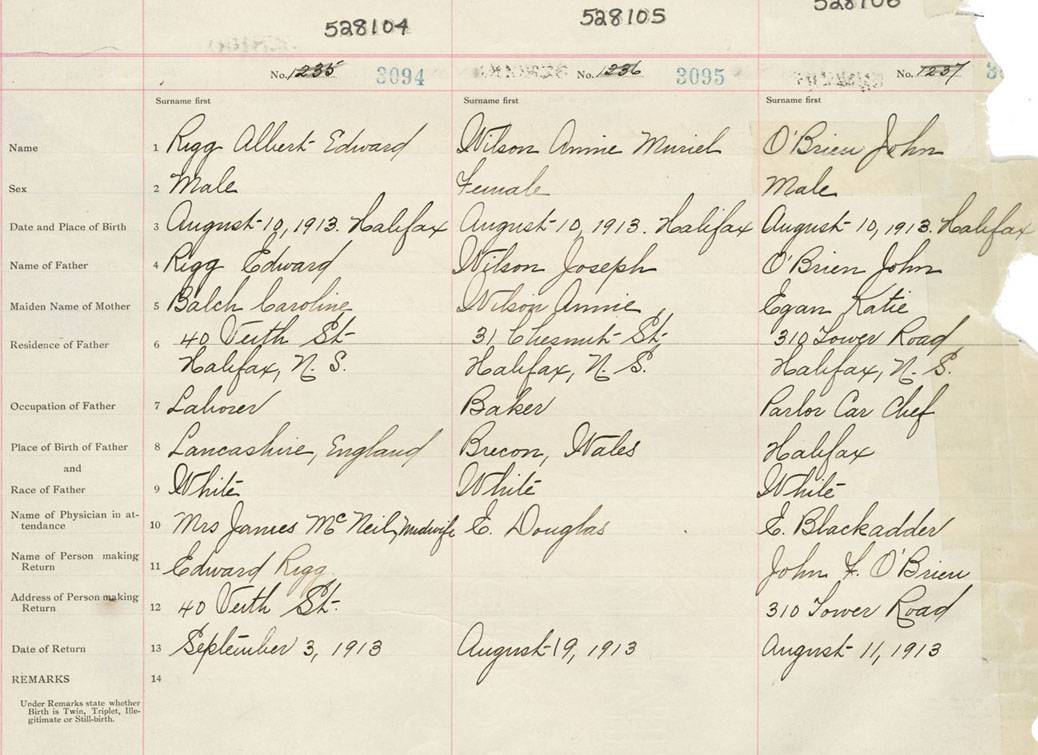 528104 528105 528106
No. 1235 3094 No. 1236 3095 No. 1237
Surname first Surname first Surname first
Name 1 Rigg Albert Edward Wilson Annie Muriel O'Brien John
Sex 2 Male Female Male
Date and Place of Birth 3 August 10, 1913. Halifax August 10, 1913. Halifax August 10, 1913. Halifax
Name of Father 4 Rigg Edward Wilson Joseph O'Brien John
Maiden Name of Mother 5 Balch Caroline Wilson Annie Egan Katie
Residence of Father 6 40 Veith St. 31 Chesnut St. 310 Tower Road
Halifax, N. S. Halifax, N. S. Halifax, N. S.
Occupation of Father 7 Laborer Baker Parlor Car Chef
Place of Birth of Father 8 Lancashire, England Brecon, Wales Halifax
and
Race of Father 9 White White White
Name of Physician in at-
tendance 10 Mrs James McNeil, Midwife E. Douglas E. Blackadder
Name of Person making
Return 11 Edward Rigg John F. O'Brien
Address of Person making
Return 12 40 Veith St. 310 Tower Road
Date of Return 13 September 3, 1913 August 19, 1913 August 11, 1913
REMARKS 14
Under Remarks state whether
Birth is Twin, Triplet, Ille-
gitimate or Still-birth.